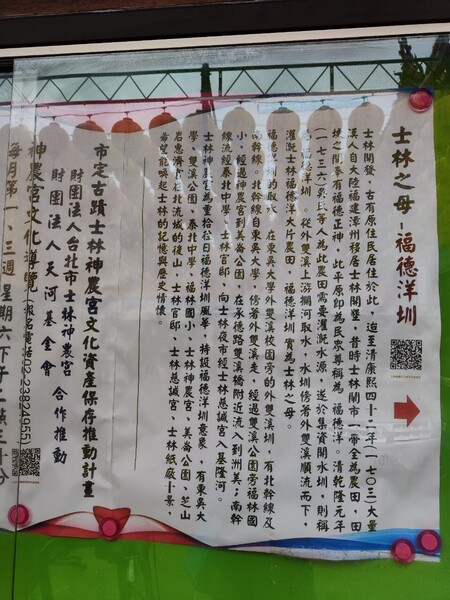 士林之母-福德洋圳
士林開發，古有原住民居住於此，迨至清康熙四十二年(一七０三)大量
漢人自大陸福建漳州移居士林開墾，昔時士林閙市一帶全為農田，田
境之間奉有福德正神，此平原即為民眾尊稱為「福德洋。清乾隆元年
(一七三六)吳氏等人為此農田需要灌溉水源，遂於集資開水圳，則稱
福德洋圳。從外雙溪上游攔河取水，水圳傍著外雙溪順流而下，
灌溉士林福德洋大片農田，福德洋圳實為士林之母。
福德洋圳的取水，在東吳大學外雙溪校園旁的外雙溪，有北幹線及
南幹線。北幹線自東吳大學，傍著外雙溪走，經過雙溪公園旁福林國
小，經過神農宮到美崙公園，在承德路雙溪橋附近流入到洲美；南幹
線流經泰北中學，士林官邸，向士林夜市經士林慈諴宮入基隆河。
士林神農宮為重拾往日福德洋圳風華，特設福德洋圳意象，有東吳大
學、雙溪公園、泰北中學、福林國小、士林神農宮、美崙公園、芝山
岩惠濟宮在北流域的後山，士林官邸、士林慈諴宮、士林紙廠十景，
希望能喚起士林的記憶與歷史情懷。
市定古蹟士林神農宮文化資產保存推動計畫
財團法人台北市士林神農宮
財團法人天河基金會 合作推動
神農宮文化導覽(報名電話02-23824955)
每月第一、三週星期六下午二點三十分